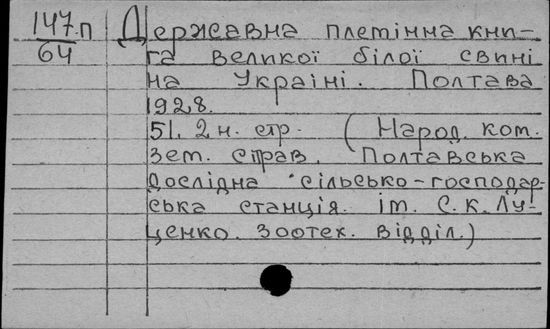 147.п
64
Державна племінна кни-
га великої білої свині
на Україні. Полтава
1928.
51. 2 н. стр. (Народ. ком.
зем. справ. Полтавська
дослідна сільсько-господар-
ська станція. ім. С. К. Лу-
ценко. Зоотех. відділ.)